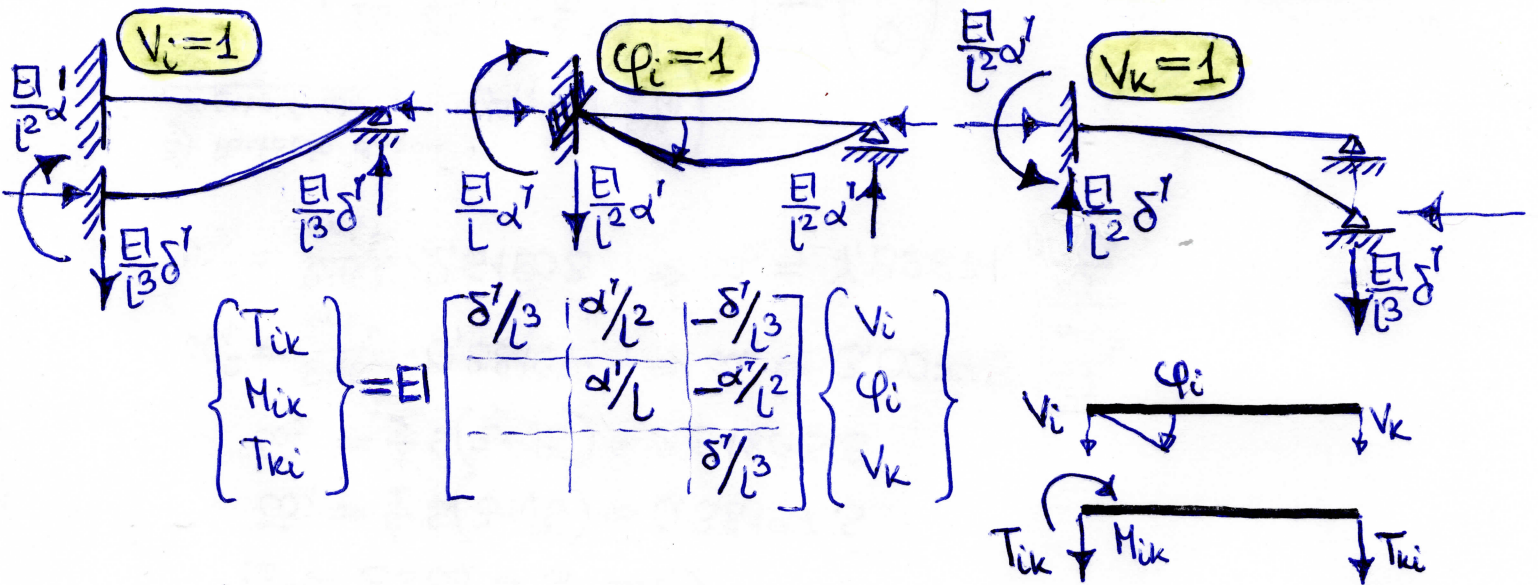 Vi=1
EI/l² α'
EI/l³ δ'
EI/l³ δ'
φi=1
EI/l α'
EI/l² α'
EI/l² α'
Vk=1
EI/l² α'
EI/l² δ'
EI/l³ δ'
{Tik Mik Tki} = EI [δ'/l³ α'/l² -δ'/l³
α'/l -α'/l²
δ'/l³] {Vi φi Vk}
Vi φi Vk
Tik Mik Tki